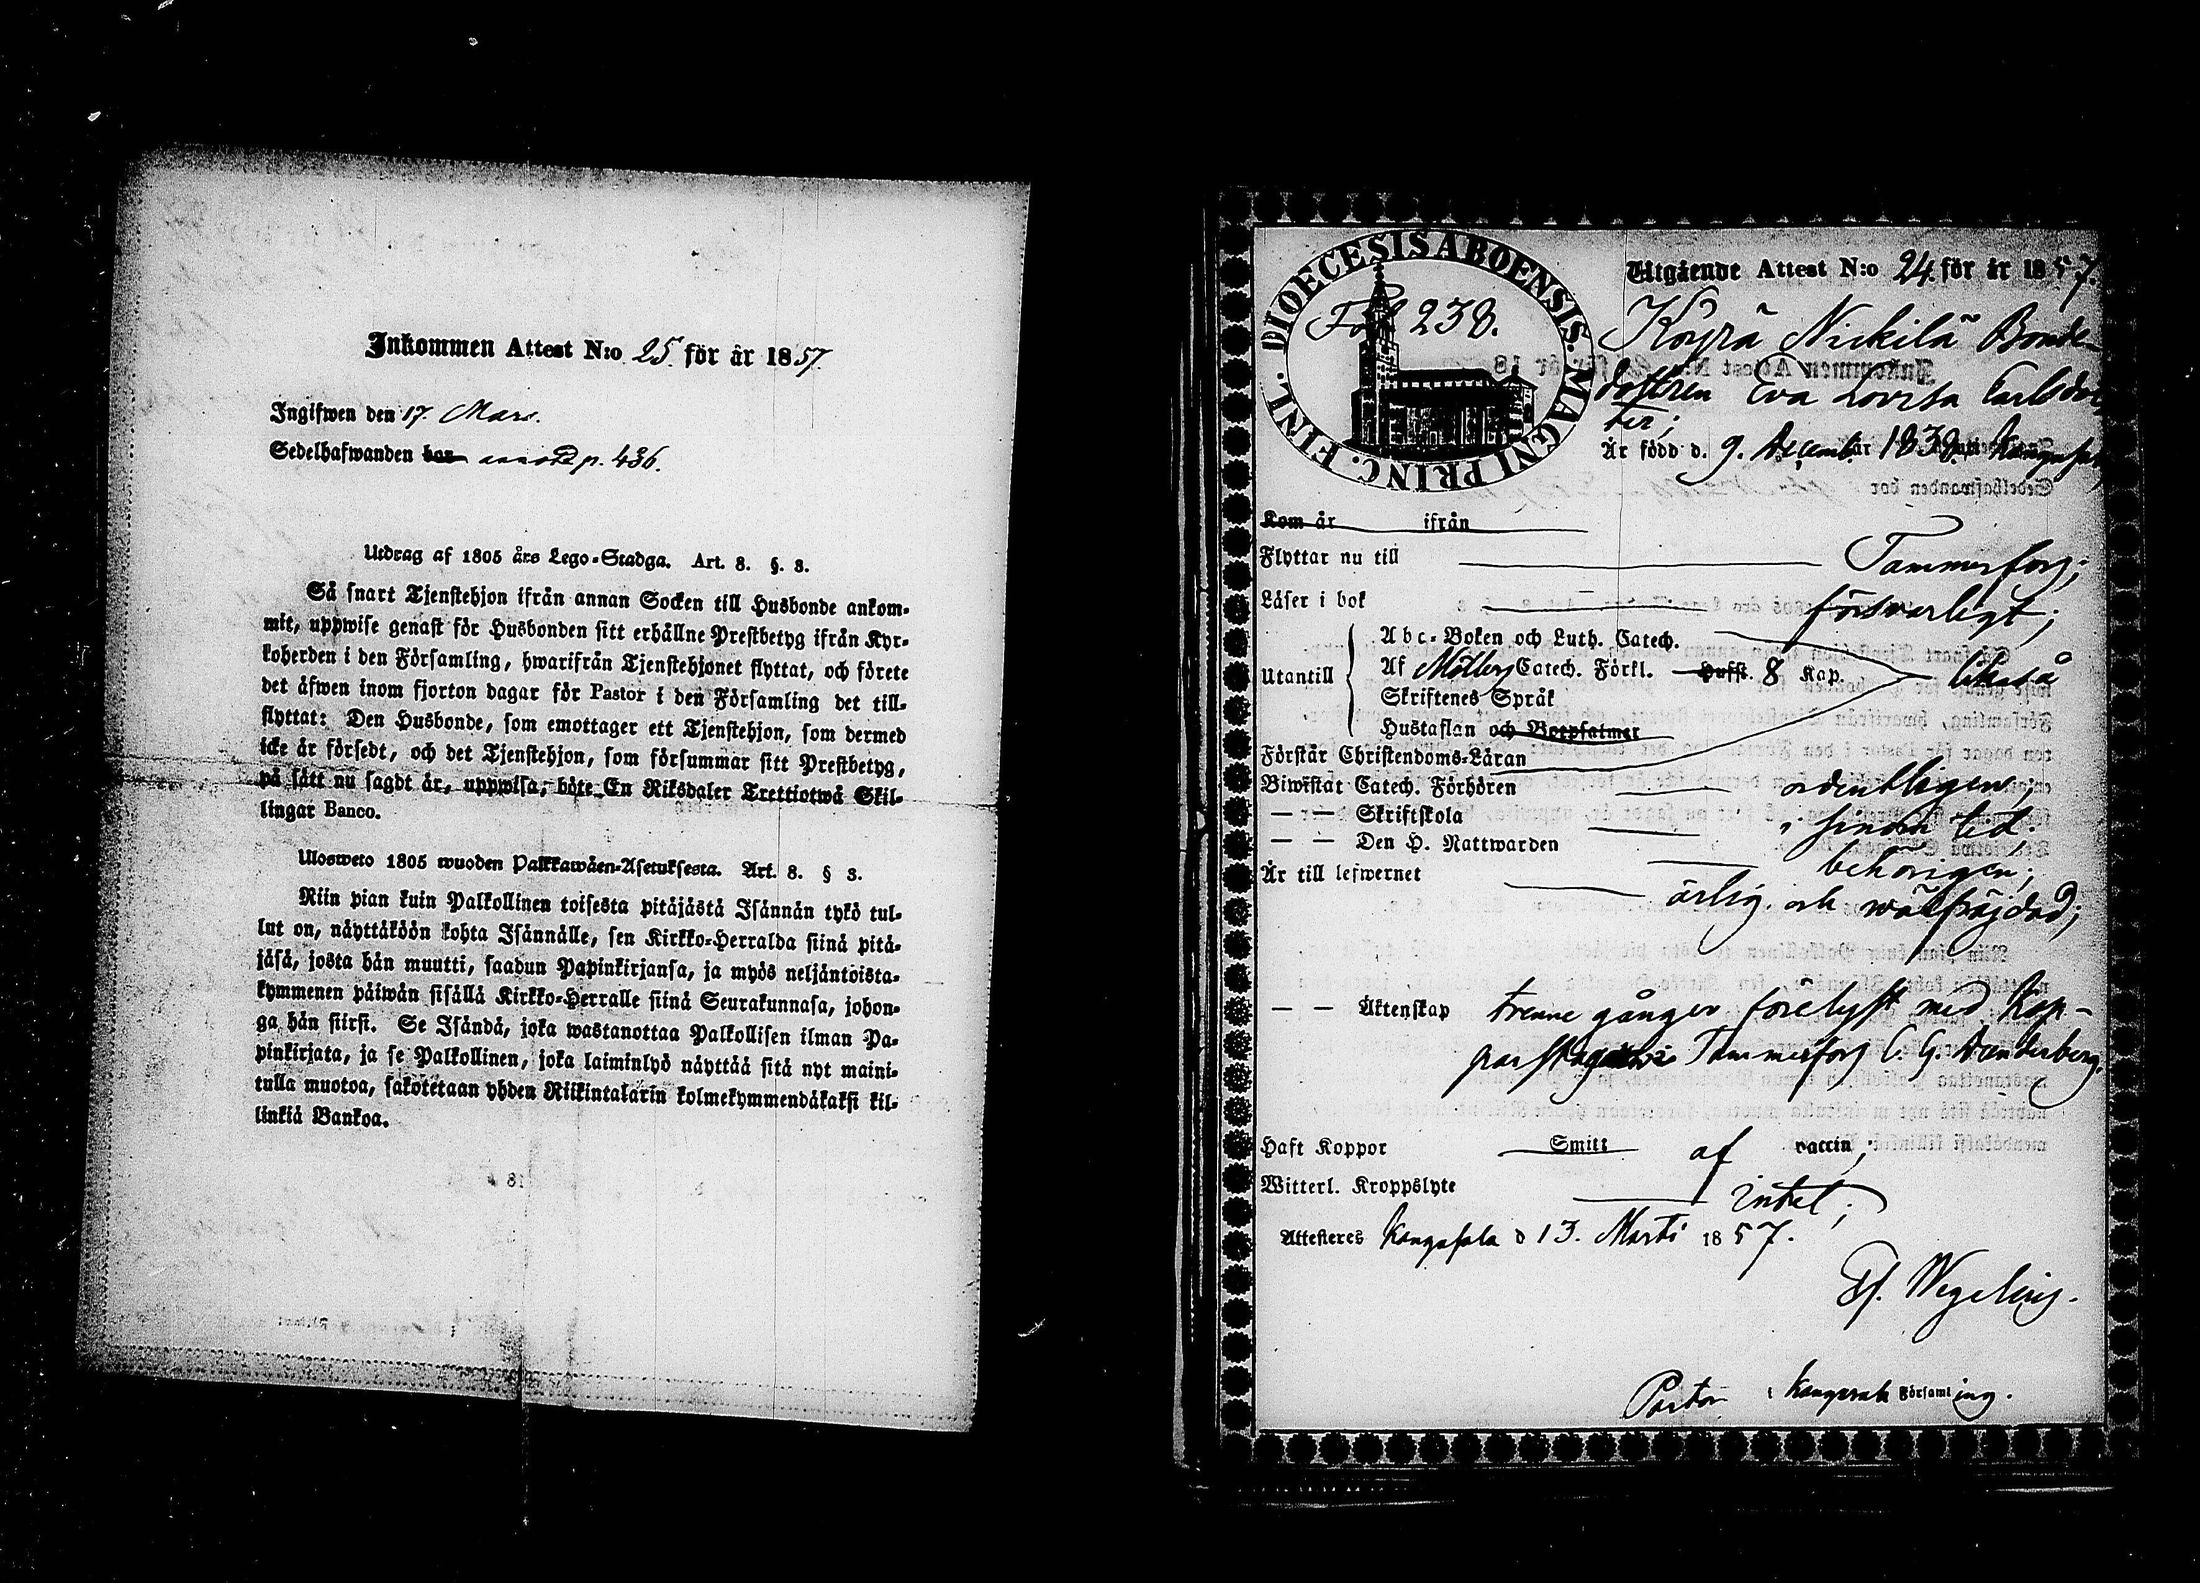 Inkommen Attest N:o 25. för år 1857.
Ingifwen den 17. Mars.
Sedelhafwanden har annoté p. 436.
Utdrag af 1805 års Lego-Stadga. Art. 8. §. 8.
Så snart Tjenstehjon ifrån annan Socken till Husbonde ankom-
mit, uppwise genast för Husbonden sitt erhållne Prestbetyg ifrån Kyr-
koherden i den Församling, hwarifrån Tjenstehjonet flyttat, och förete
det äfwen inom fjorton dagar för Pastor i den Församling det till-
flyttat: Den Husbonde, som emottager ett Tjenstehjon, som dermed
icke är försedt, och det Tjenstehjon, som försummar sitt Prestbetyg,
på sätt nu sagdt är, uppwisa, böte En Riksdaler Trettiotwå Skil-
lingar Banco.
Ulosweto 1805 wuoden Palkkawäen-Asetuksesta. Art. 8. § 3.
Niin pian kuin Palkollinen toisesta pitäjästä Isännän tykö tul-
lut on, näyttäköön kohta Isännälle, sen Kirkko-Herralda siinä pitä-
jäsä, josta hän muutti, saadun Papinkirjansa, ja myös neljäntoista-
kymmenen päiwän sisällä Kirkko-Herralle siinä Seurakunnasa, johon-
ga hän siirsi. Se Isändä, joka wastanottaa Palkollisen ilman Pa-
pinkirjata, ja se Palkollinen, joka laiminlyö näyttää sitä nyt maini-
tulla muotoa, sakotetaan yhden Riikintalarin kolmekymmendäkaksi kil-
linkiä Bankoa.
DIOECESIS ABOENSIS. MAGNI PRINC. FINL.
Fol 238.
Utgående Attest N:o 24 för år 1857.
Köyrä Nickilä Bonde
dottren Eva Lovisa Carlsdot
ter;
Är född d. 9. Decemb. år 1838. i Kangasala
Kom år ifrån
Flyttar nu till Tammerfors;
Läser i bok försvarligt;
Utantill
Abc-Boken och Luth. Catech.
Af Möllers Catech. Förkl. Hufst. 8 Kap. likaså
Skriftenes Språk
Hustaflan och Botpsalmer
Förstår Christendoms-Läran
Biwistat Catech. Förhören ordentligen;
— — Skriftskola i sinom tid.
— — Den H. Nattwarden behörigen;
Är till lefwernet ärlig och wälfräjdad;
— — Äktenskap trenne gånger förelyst med Kop-
parslagare i Tammerfors C. G. Wenderberg.
Haft Koppor Smitt af vaccin;
Witterl. Kroppslyte intet;
Attesteres Kangasala d 13. Marti 1857.
Wegelius.
Pastor i Kangasala Församling.